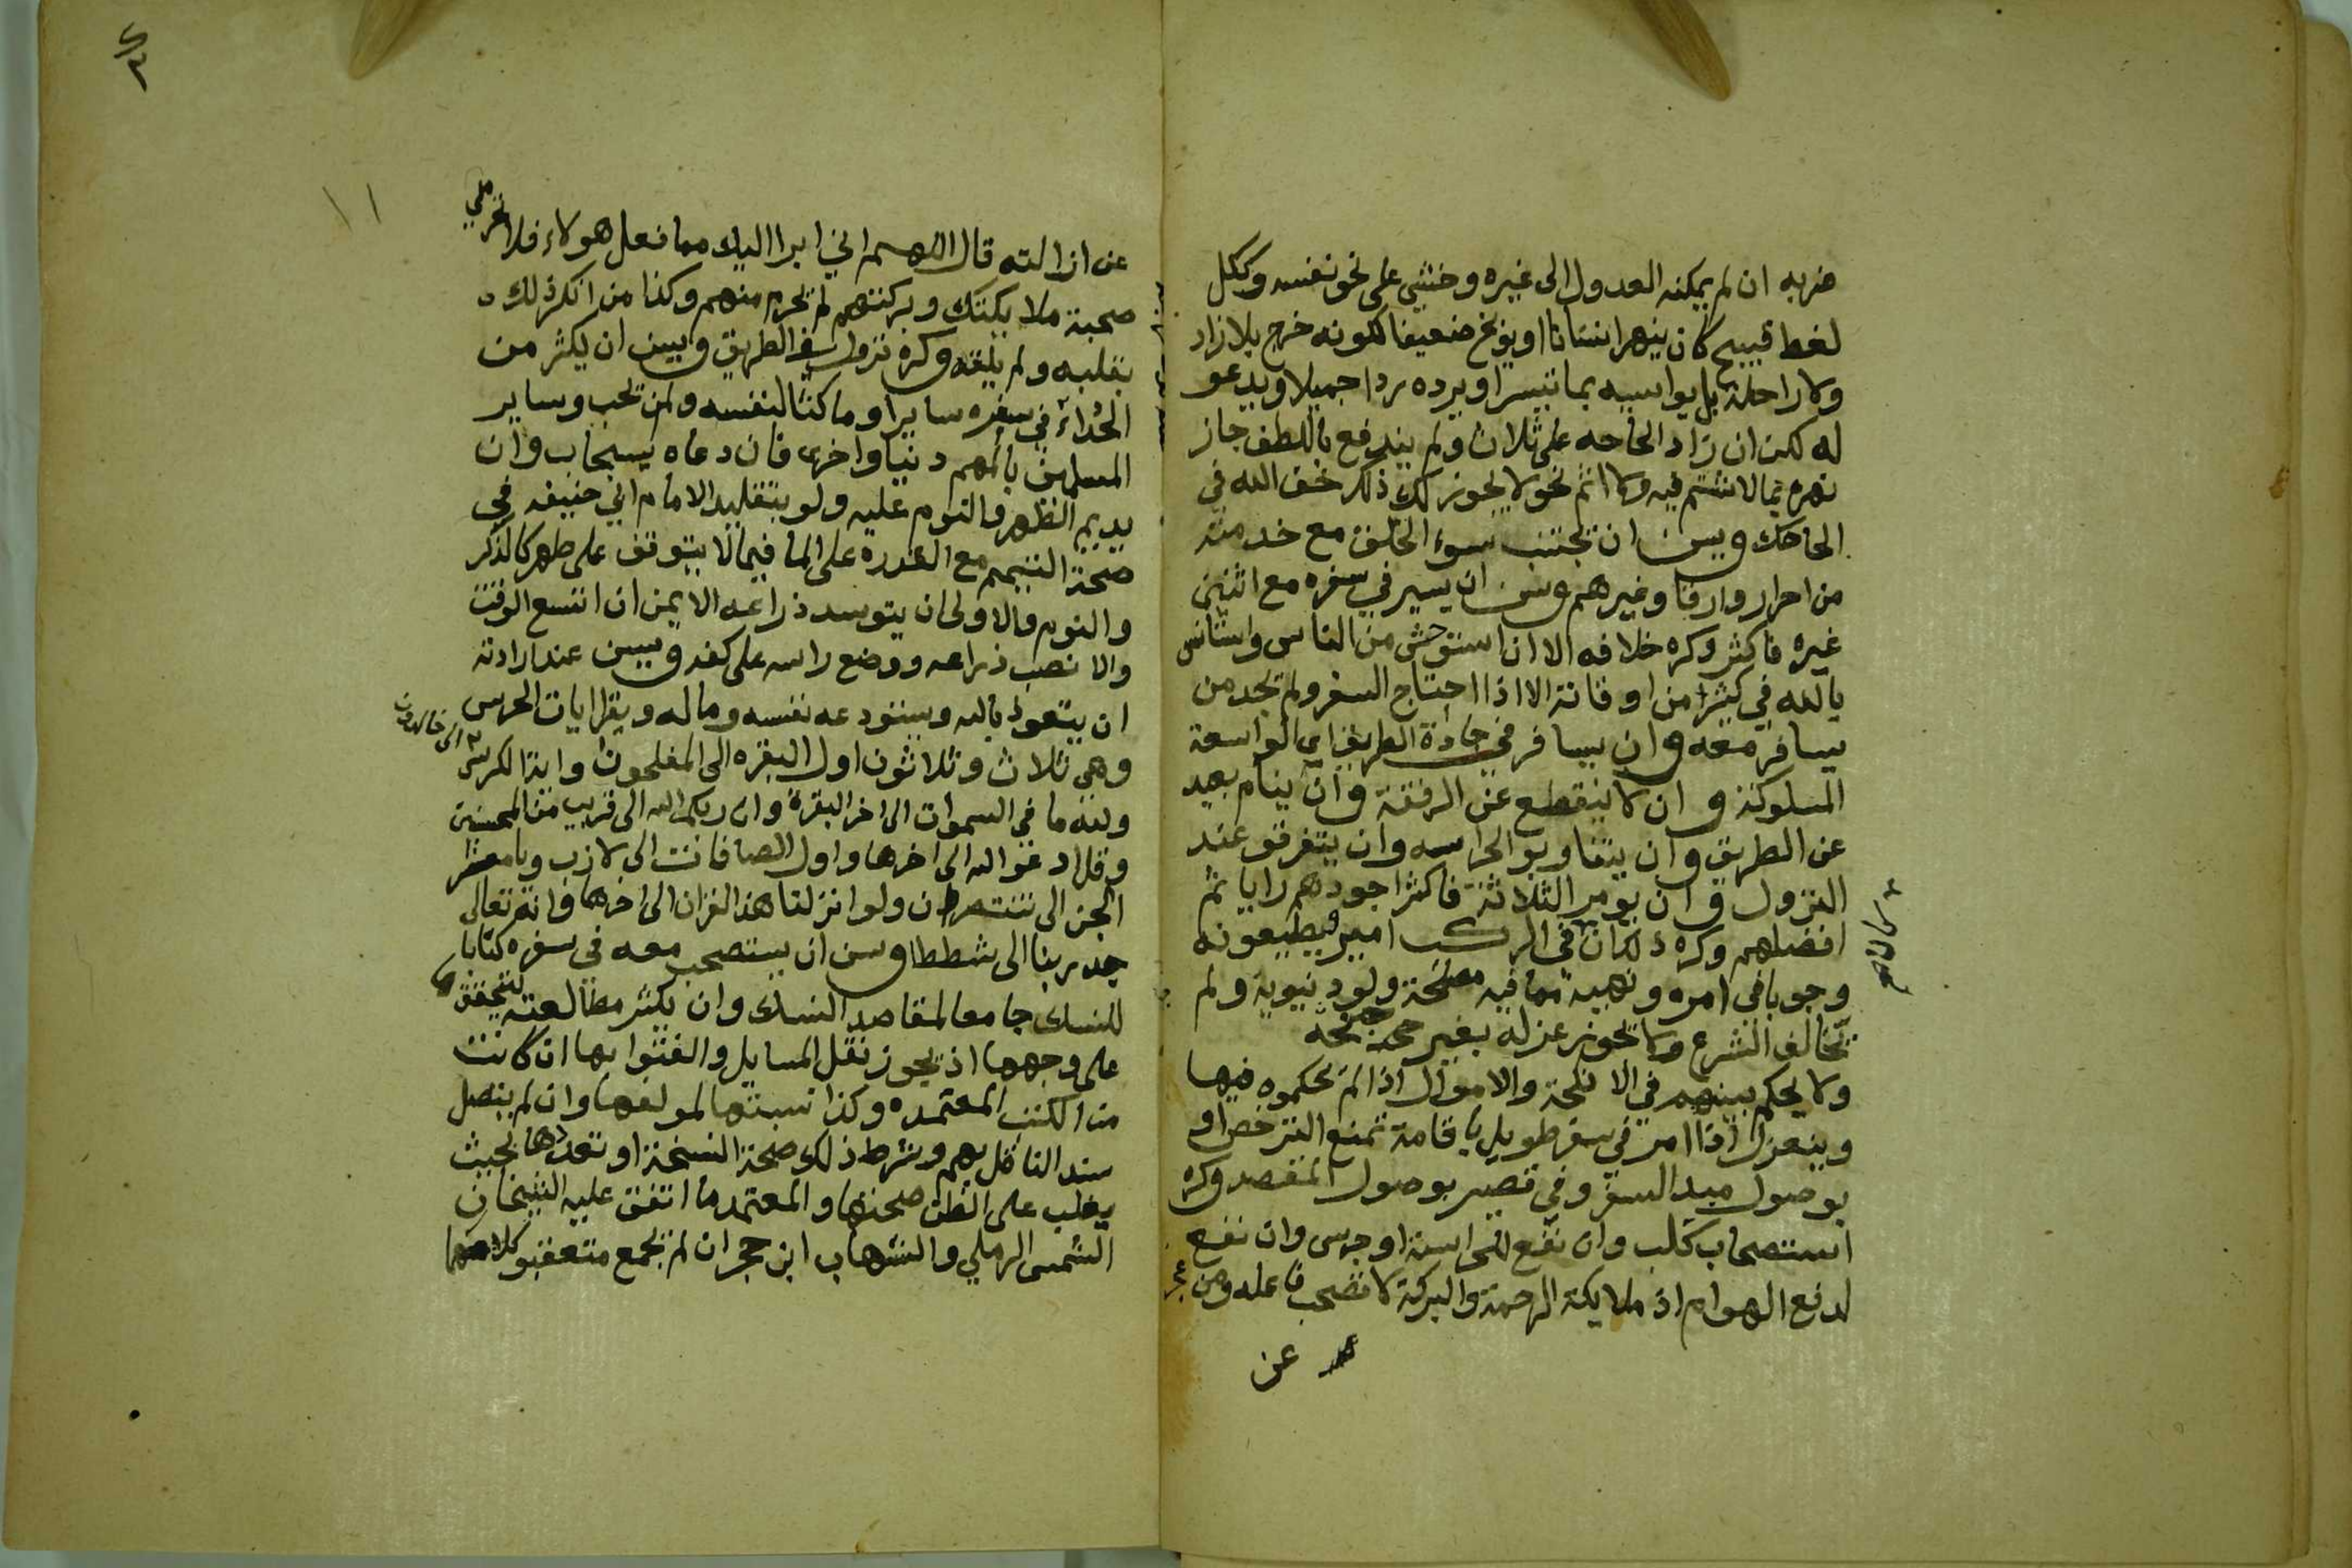 ضربه ان لم يمكنه العدول الى غيره وخشى على نحو نفسه وككل
لغط قبيح كان ينهر انسانا او يوبخ ضعيفا لكونه خرج بلا زاد
ولا راحلة بل يواسيه بما تيسر او يرده ردا جميلا ويدعو
له لكن ان زاد الحاحه على ثلاث ولم يندفع باللطف جاز
نهره بما لا شتم فيه ولا اثم نحو لا يجوز لك ذلك خف الله في
الحاحك ويسن ان يجتنب سوء الخلق مع خدمته
من احرار وارقا وغيرهم وسن ان يسير في سفره مع اثنين
غيره فاكثر وكره خلافه الا ان استوحش من الناس واستانس
بالله في كثير من اوقاته الا اذا احتاج السفر ولم يجد من
يسافر معه وان يسافر في جادة الطريق اي الواسعة
المسلوكة وان لا ينقطع عن الرفقة وان ينام بعيد
عن الطريق وان يتناوبو الحراسه وان يتفرقو عند
النزول وان يومر الثلاثة فاكثر اجودهم رايا ثم
افضلهم وكره ذلك ان في الركب امير ويطيعونه
وجوبا في امره ونهيه مما فيه مصلحة ولو دنيوية ولم
تخالف الشرع ولا يجوز عزله بغير جنحه
ولا يحكم بينهم في الانكحة والاموال اذا لم يحكموه فيها
وينعزل اذا امر في سفر طويل باقامة تمنع الترخص او
بوصول مبدا السفر وفي قصير بوصول المقصد وكره
استصحاب كلب وان نفع لحراسة او جرس وان نفع
لدفع الهوام اذ ملايكة الرحمة والبركة لا تصحب فاعله ومن عجز
عن
١١
عن ازالته قال اللهم اني ابرا اليك مما فعل هولاء فلا تحرمني
صحبة ملايكتك وبركتهم لم يحرم منهم وكذا من انكر ذلك
بقلبه ولم وكره نزول في الطريق ويسن ان يكثر من
الدعاء في سفره سايرا وماكثا لنفسه ولمن يحب وساير
المسلمين بالمهم دنيا واخرى فان دعاه يستجاب وان
يديم الطهر والنوم عليه ولو بتقليد الامام ابي حنيفه في
صحة التيمم مع القدرة على الما فيما لا يتوقف على طهر كالذكر
والنوم والاولى ان يتوسد ذراعه الايمن ان اتسع الوقت
والا نصب ذراعه ووضع راسه على كفه ويسن عند ارادته
ان يتعوذ بالله ويستودعه نفسه وماله ويقرا ايات الحرس
وهي ثلاث وثلاثون اول البقره الى المفلحون واية الكرسي الى خالدون
ولله ما في السموات الى اخر البقرة وان ربكم الله الى قريب من المحسنين
وقل ادعوا الله الى اخرها واول الصافات الى لازب ويا معشر
الجن الى تنتصران ولو انزلنا هذا القران الى اخرها وانه تعالى
جد ربنا الى شططا وسن ان يستصحب معه في سفره كتابا
للنسك جامعا لمقاصد النسك وان يكثر مطالعته لتحققها
على وجهها اذ يجوز نقل المسايل والفتوا بها ان كانت
من الكتب المعتمده وكذا نسبتها لمولفها وان لم يتصل
سند الناقل بهم وشرط ذلك صحة النسخة او تعددها بحيث
يغلب على الظن صحتها والمعتمد ما اتفق عليه الشيخان
الشمس الرملي والشهاب ابن حجر ان لم يجمع متعقبو كلامهما